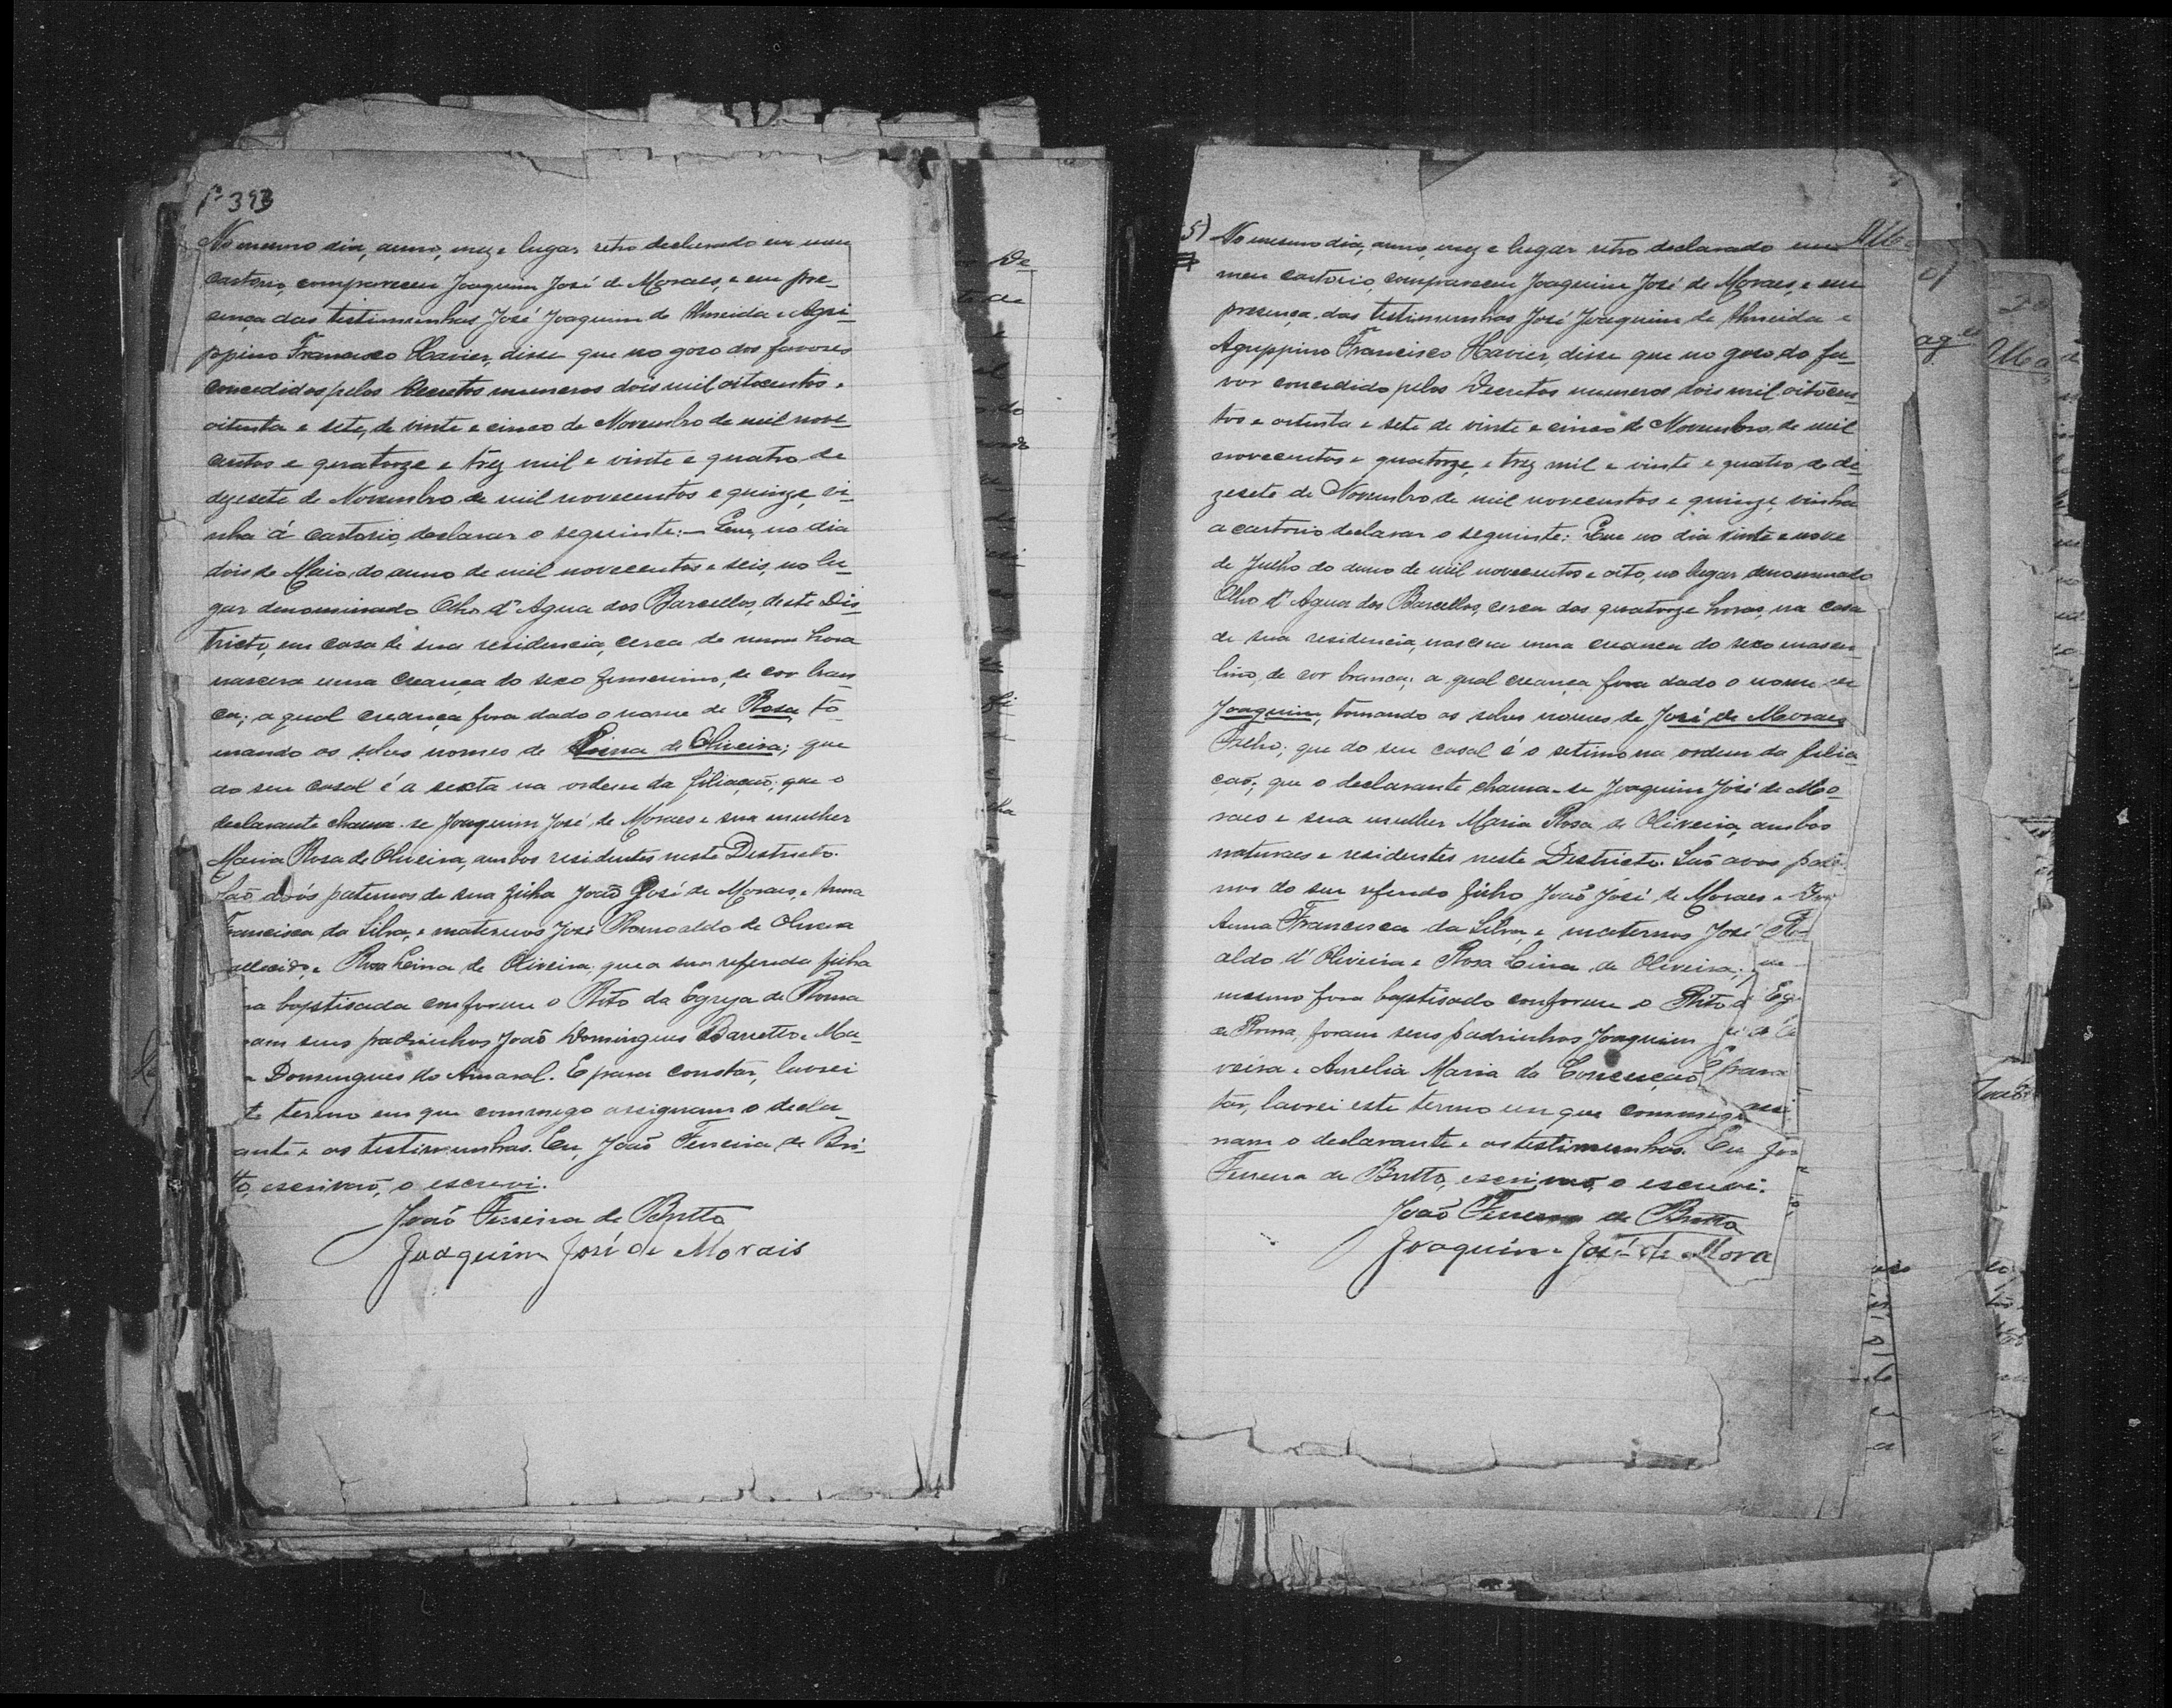 393
No mesmo dia, anno, mez e lugar retro declarado em meu
cartorio, compareceu Joaquim José de Moraes, e em pre-
sença das testimunhas José Joaquim de Almeida e Agri-
ppino Francisco Xavier, disse que no goso dos favores
concedidos pelos Decretos numeros dois mil oitocentos e
oitenta e sete, de vinte e cinco de Novembro de mil nove-
centos e quatorze e trez mil e vinte e quatro de
dezesete de Novembro de mil novecentos e quinze, vi-
nha á cartorio, declarar o seguinte:— Que, no dia
dois de Maio do anno de mil novecentos e seis, no lu-
gar denominado Olho d'Agua dos Barcellos, deste Dis-
tricto, em casa de sua residencia, cerca de uma hora
nascera uma creança do sexo femenino, de cor bran-
ca; a qual creança fora dado o nome de Rosa, to-
mando os sobres nomes de Lima de Oliveira; que
do seu casal é a sexta na ordem da filiação; que o
declarante chama-se Joaquim José de Moraes e sua mulher
Maria Rosa de Oliveira, ambos residentes neste Districto.
São avós paternos de sua filha João José de Moraes, e Anna
Francisca da Silva, e maternos José Romoaldo de Oliveira
allecido, e Rosa Leina de Oliveira que a sua referida filha
ra baptisada conforme o Rito da Egreja de Roma
ram seus padrinhos João Domingues Barretto e Ma-
a Domingues do Amaral. E para constar, lavrei
te termo em que commigo assignam o decla-
ante e as testimunhas. Eu, João Ferreira de Bri-
to, escrivão, o escrevi.
João Ferreira de Britto
Joaquim José de Morais
5) No mesmo dia, anno, mez e lugar retro declarado em
meu cartorio, compareceu Joaquim José de Moraes, e em
presença das testimunhas José Joaquim de Almeida e
Agrippino Francisco Xavier, disse que no goso do fa-
vor concedido pelos Decretos numeros dois mil oitocen-
tos e oitenta e sete de vinte e cinco de Novembro de mil
novecentos e quatorze, e trez mil e vinte e quatro de de-
zesete de Novembro de mil novecentos e quinze, vinha
a cartorio declarar o seguinte: Que no dia vinte e nove
de Julho do anno de mil novecentos e oito, no lugar denominado
Olho d'Agua dos Barcellos, cerca das quatorze horas, na casa
de sua residencia, nascera uma creança do sexo mascu-
lino, de cor branca; a qual creança fora dado o nome de
Joaquim, tomando os sobres nomes de José de Moraes
Filho; que do seu casal é o setimo na ordem da filia-
ção; que o declarante chama-se Joaquim José de Mo-
raes e sua mulher Maria Rosa de Oliveira, ambos
naturaes e residentes neste Districto. São avos pater-
nos do seu referido filho João José de Moraes e Dona
Anna Francisca da Silva, e maternos José Ro-
aldo d'Oliveira e Rosa Lina de Oliveira; que
mesmo fora baptisado conforme o Rito d Egr
de Roma, foram seus padrinhos Joaquim
veira e Aurelia Maria da Conceição E para
tar, lavrei este termo em que commigo assi
nam o declarante e as testimunhas. Eu Jo
Ferreira de Britto, escrivão, o escrevi.
João Ferreira de Britto
Joaquim José de Mora